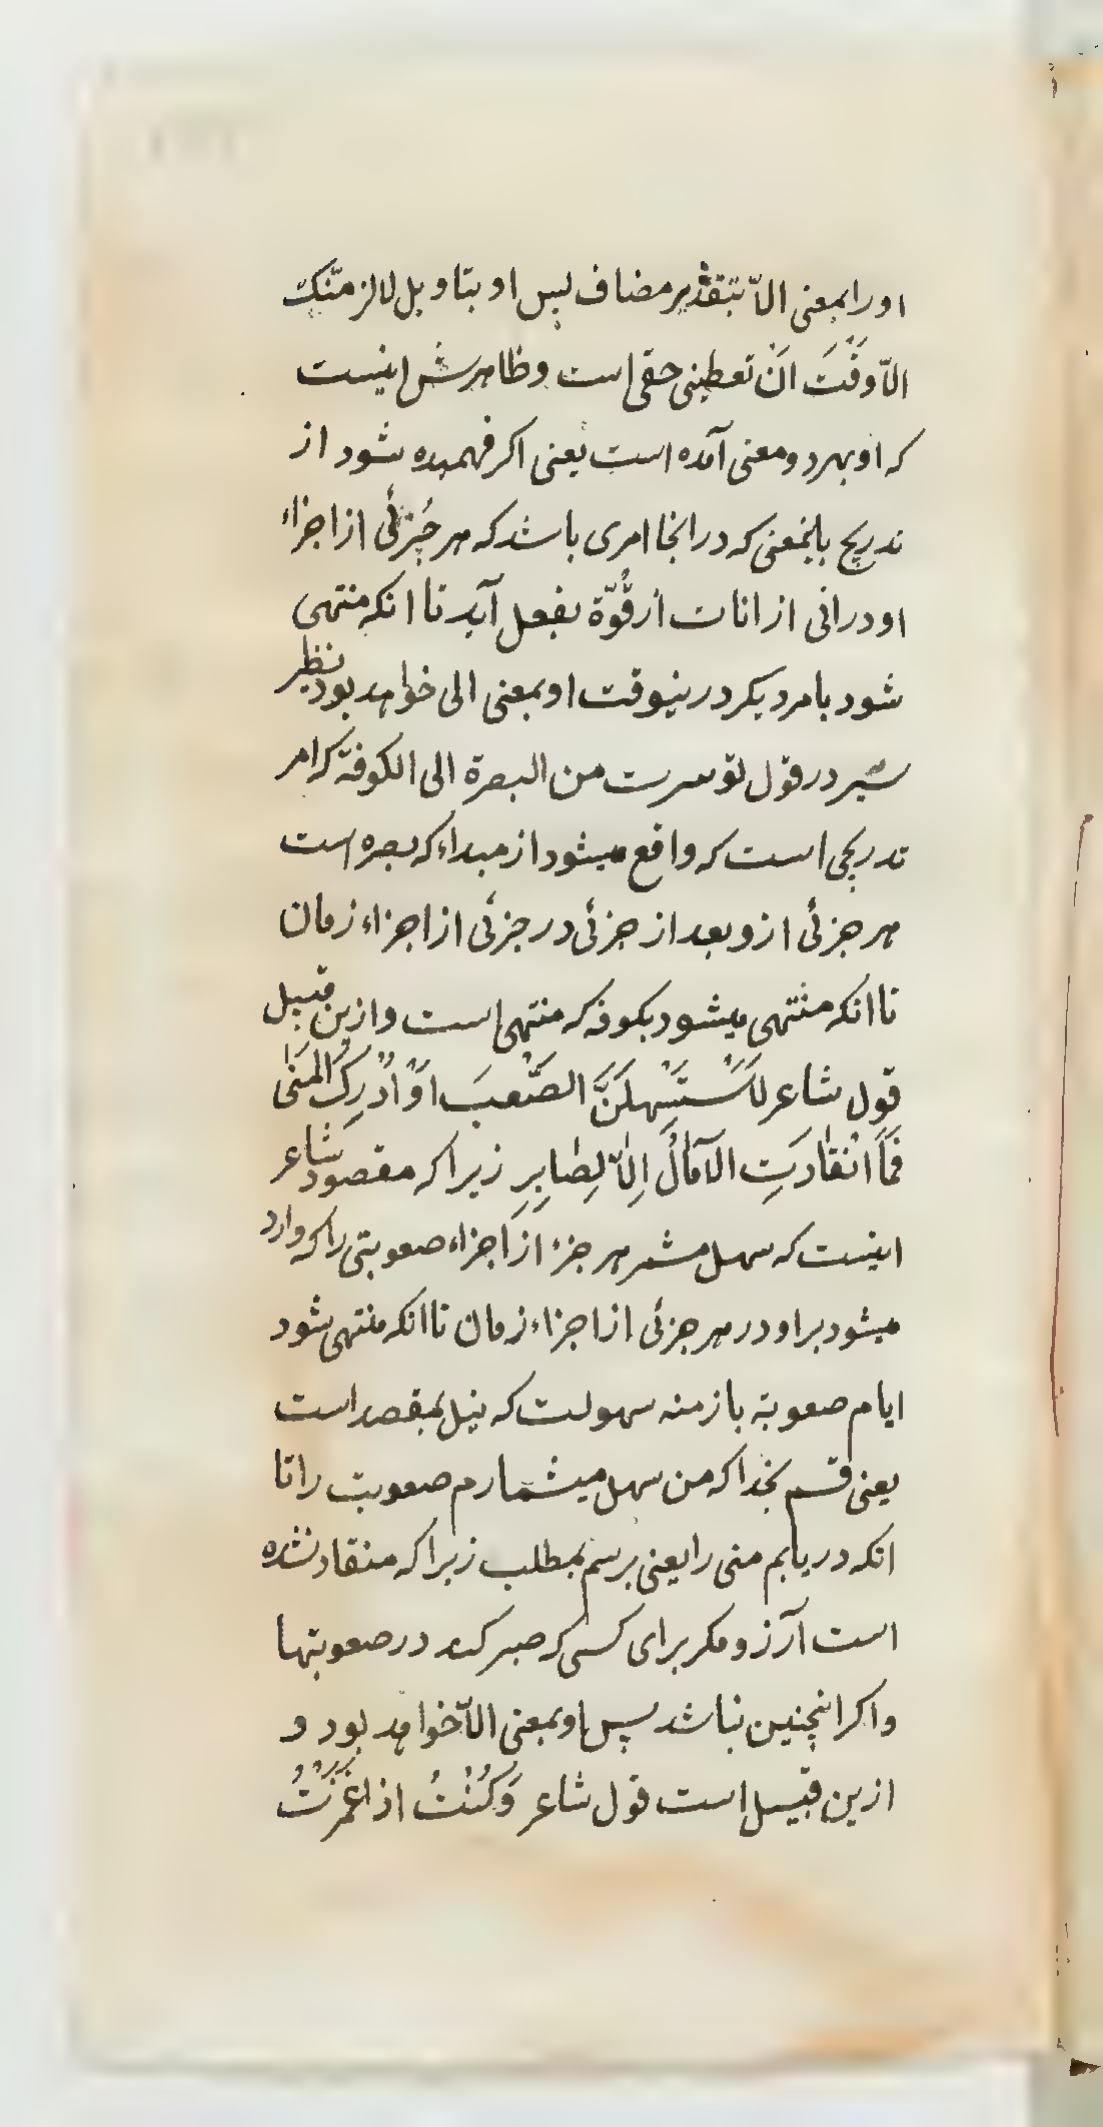 اورا بمعنی الّا بتقدیر مضاف پس او بتاویل لالزمنّک
الّا وَقْتَ اَنْ تعطینی حقی است و ظاهرش اینست
که او بهر دو معنی آمده است یعنی اکر فهمیده شود از
تدریج باینمعنی که در انجا امری باشد که هر جُزئی از اجزاء
او در انی از انات از قُوّة بفعل آید تا انکه منتهی
شود بامر دیکر درینوقت او بمعنی الی خواهد بود نظیر
سَیر در قول تو سرت من البصرة الی الکوفة که امر
تدریجی است که واقع میشود از مبداء که بصره است
هر جزئی ازو بعد از جزئی در جزئی از اجزاء زمان
تا انکه منتهی میشود بکوفه که منتهی است و ازین قبیل
قول شاعر لَاَسْتَسْهِلَنَّ الصَّعبَ اَوْ اُدْرِکَ الْمُنَی
فَمَا انْقَادَتِ الآمَالُ اِلّا لِصَابِرِ زیرا که مقصود شاعر
اینست که سهل مشمر هر جزء از اجزاء صعوبتی را که وارد
میشود بر او در هر جزئی از اجزاء زمان تا انکه منتهی شود
ایام صعوبة بازمنه سهولت که نیل بمقصد است
یعنی قسم بخدا که من سهل میشمارم صعوبت را تا
انکه دریابم منی را یعنی برسم بمطلب زیرا که منقاد نشده
است آرزو مکر برای کسی که صبر کند در صعوبتها
و اکر اینچنین نباشد پس او بمعنی الّا خواهد بود و
ازین قبیل است قول شاعر وَکُنْتُ اذا غَمَزْتُ